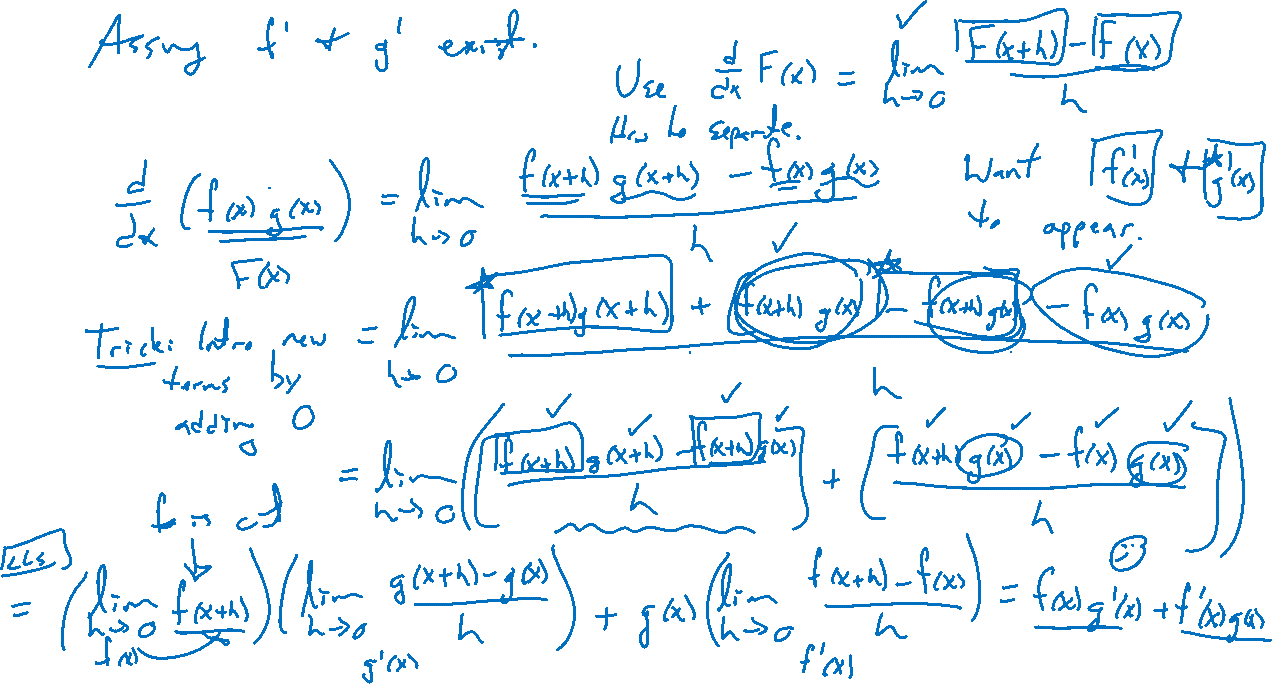 Assume f' & g' exist.
Use d/dx F(x) = lim h→0 (F(x+h) - F(x))/h
How to separate.
d/dx (f(x) g(x)) = lim h→0 (f(x+h) g(x+h) - f(x) g(x))/h
F(x)
Want f'(x) + g'(x)
to appear.
Trick: Intro new terms by adding 0
= lim h→0 (f(x+h)g(x+h) + f(x+h) g(x) - f(x+h) g(x) - f(x) g(x))/h
= lim h→0 ([(f(x+h) g(x+h) - f(x+h) g(x))/h] + [(f(x+h) g(x) - f(x) g(x))/h])
f is ct
= (lim h→0 f(x+h)) (lim h→0 (g(x+h) - g(x))/h) + g(x) (lim h→0 (f(x+h) - f(x))/h) = f(x) g'(x) + f'(x) g(x)
f(x)
g'(x)
f'(x)